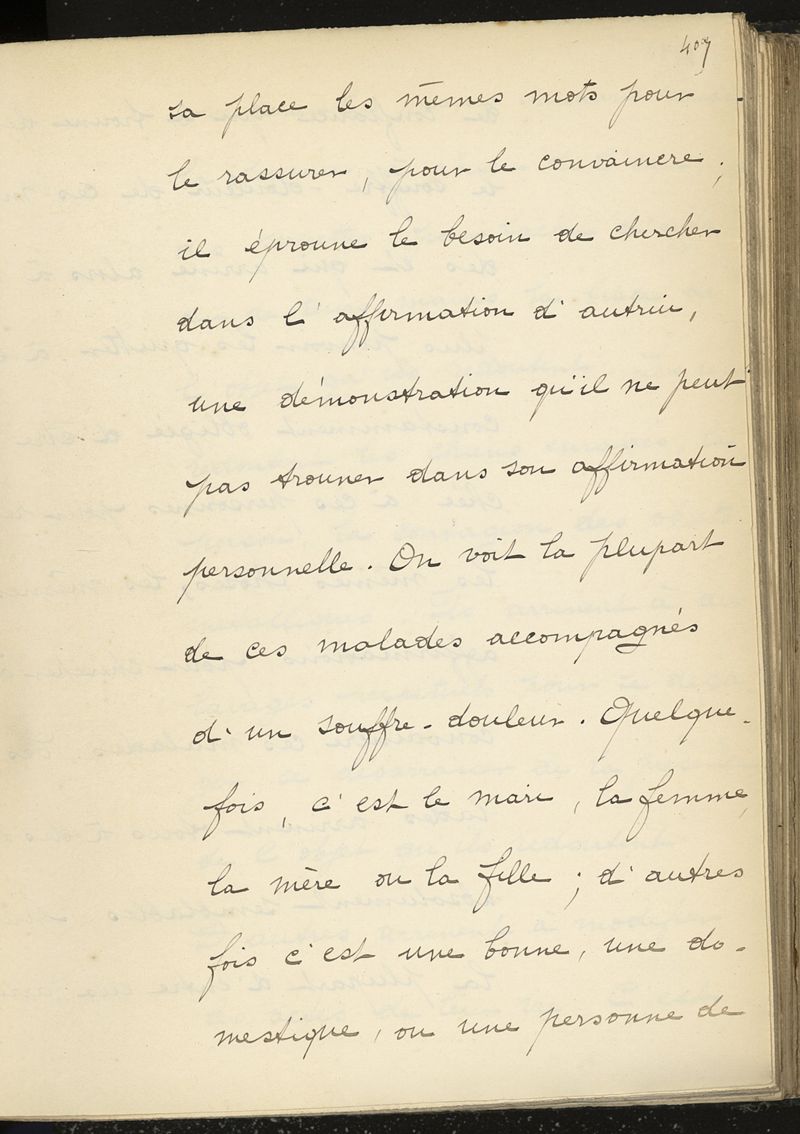 407
sa place les mêmes mots pour
le rassurer, pour le convaincre ;
il éprouve le besoin de chercher
dans l'affirmation d'autrui,
une démonstration qu'il ne peut
pas trouver dans son affirmation
personnelle. On voit la plupart
de ces malades accompagnés
d'un souffre-douleur. Quelque-
fois, c'est le mari, la femme,
la mère ou la fille ; d'autres
fois c'est une bonne, une do-
mestique, ou une personne de